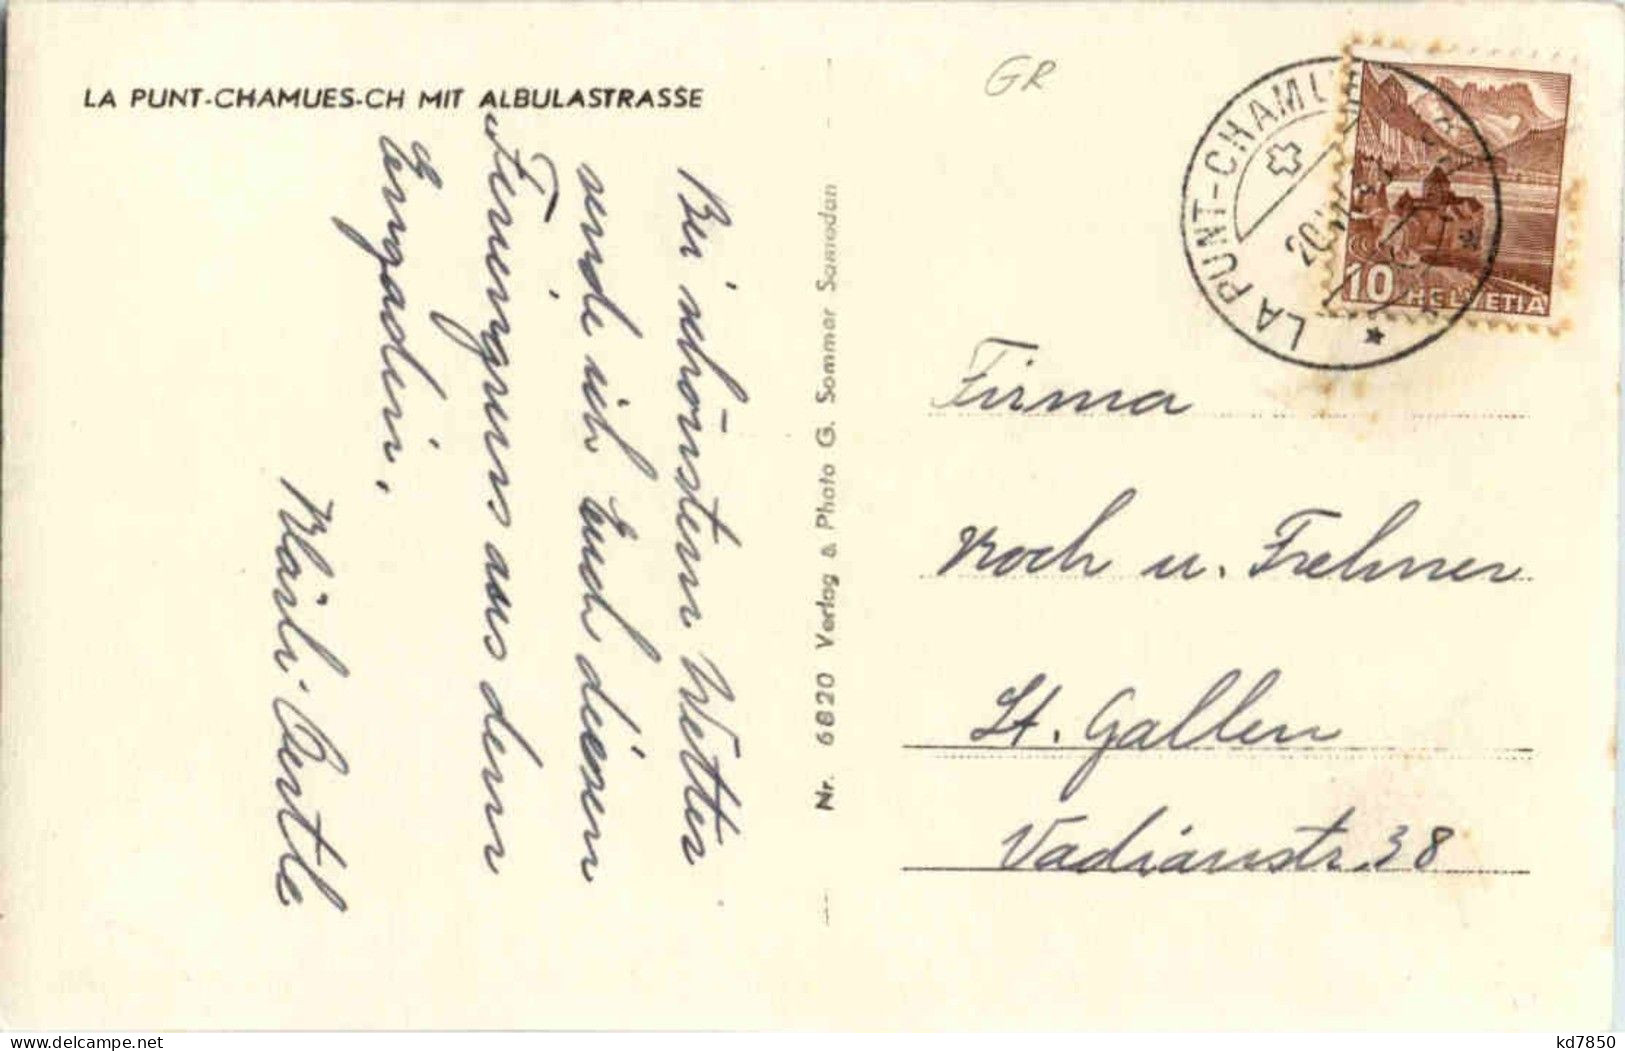 LA PUNT-CHAMUES-CH MIT ALBULASTRASSE
Bei schönstem Wetter
sende ich Euch diesen
Feriengruss aus dem
Engadin.
Kläirli Oertle
Nr. 6820 Verlag & Photo G. Sommer Samedan
GR
LA PUNT-CHAMU
20.
10 HELVETIA
Firma
Koch u. Frehner
St. Gallen
Vadianstr. 38
kd7850